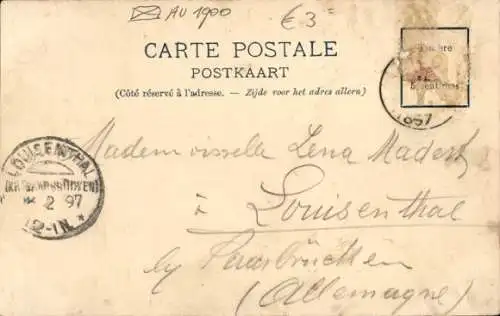 AV 1900
€ 3=
CARTE POSTALE
POSTKAART
(Côté réservé à l'adresse. – Zijde voor het adres allern)
Timbre
1897
Mademoiselle Lena Madert
à Louisenthal
by Saarbrücken
(Allemagne)
LOUISENTHAL
2 97
12-1N.